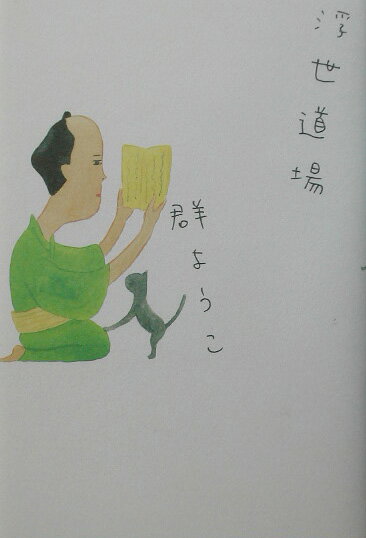 浮世道場
群ようこ